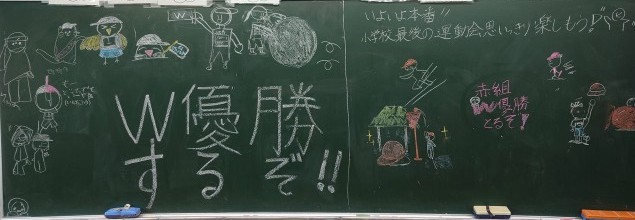 W優勝
するぞ!!
いよいよ本番!!
小学校最後の運動会思いっきり楽しもう!
赤組
W優勝
とるぞ!
W